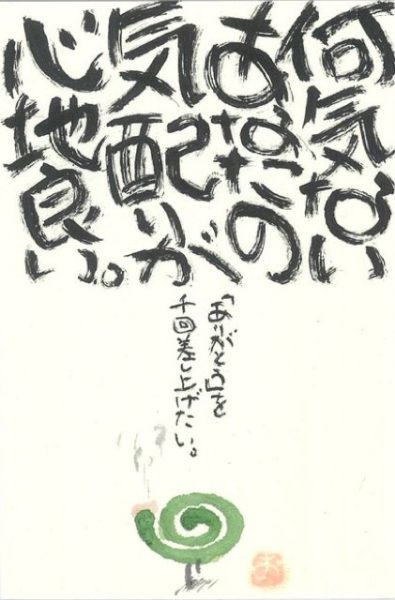 何気ない
あなたの
気配りが
心地良い。
「ありがとう」を
千回差し上げたい。